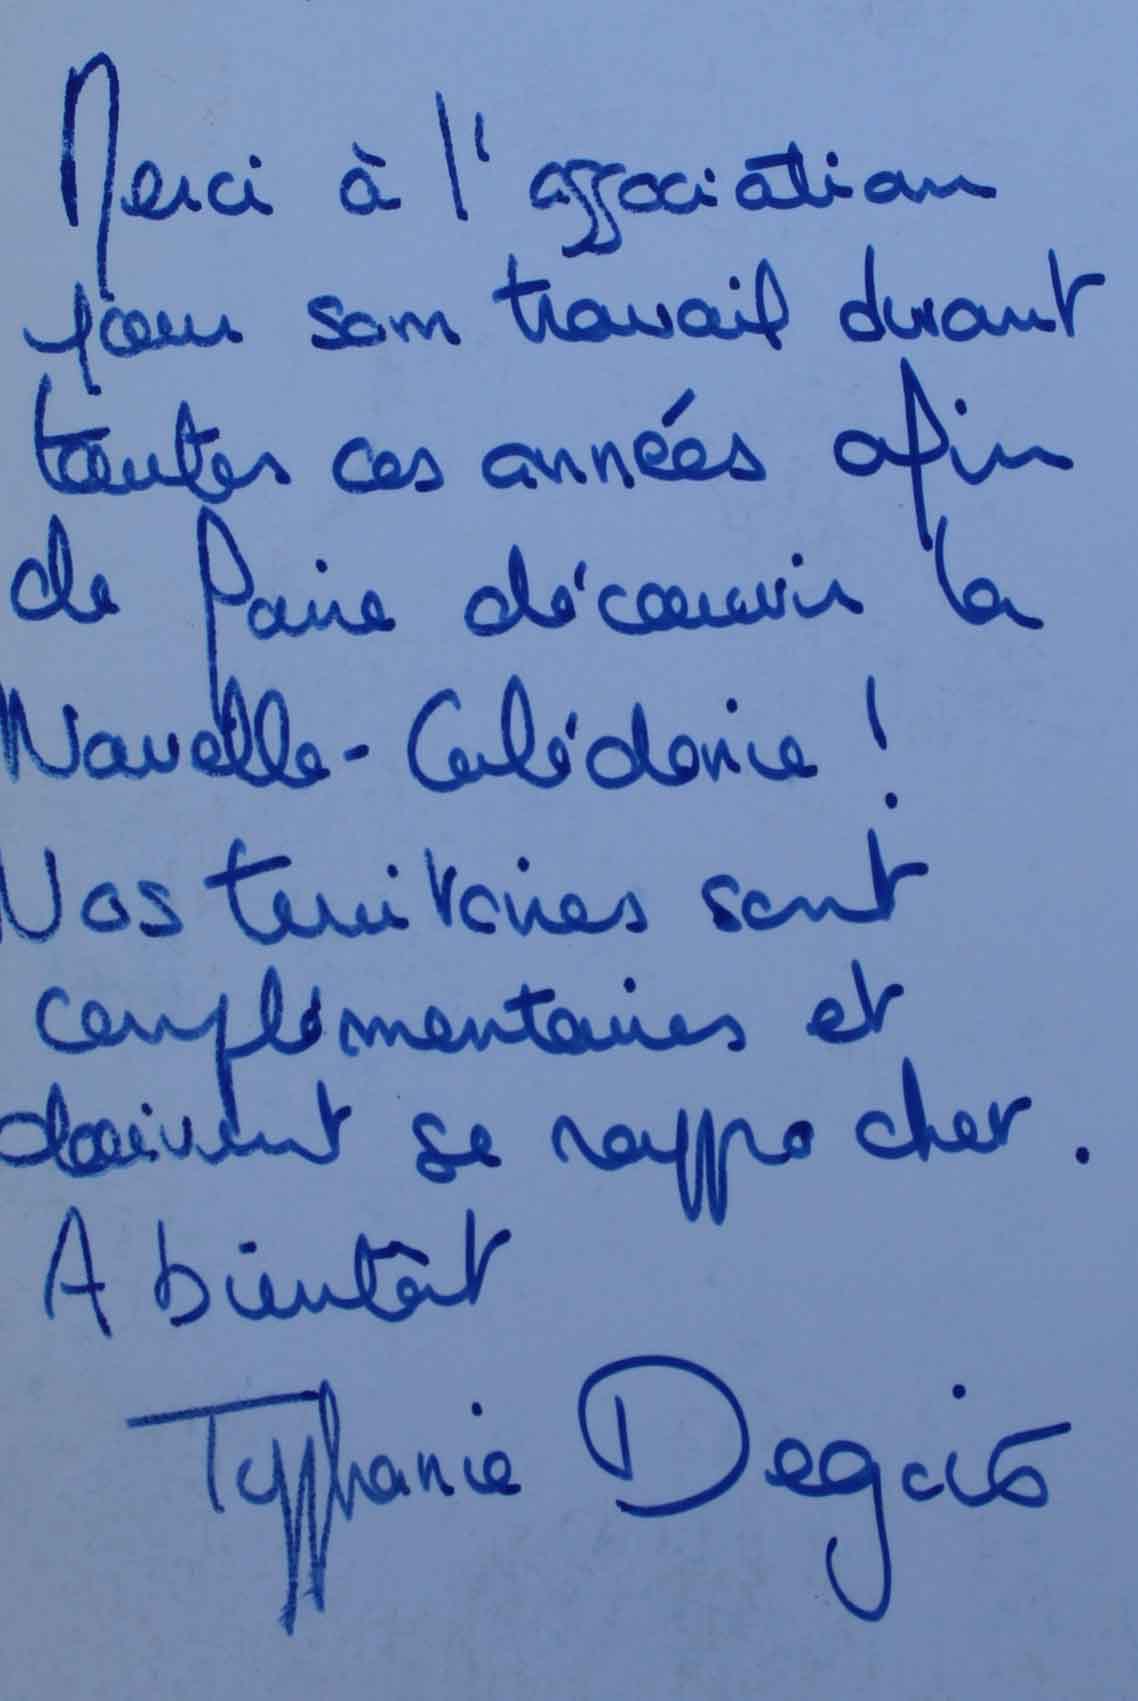 Merci à l'association
pour son travail durant
toutes ces années afin
de faire découvrir la
Nouvelle-Calédonie !
Nos territoires sont
complémentaires et
doivent se rapprocher.
A bientôt
Typhanie Degois